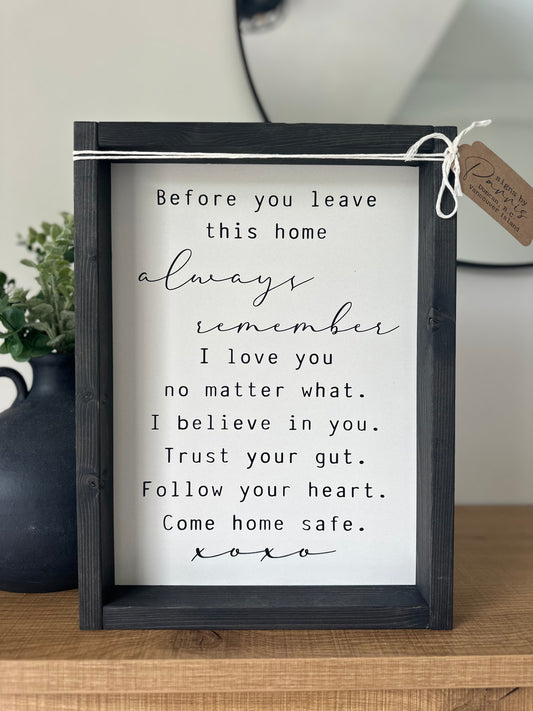 Before you leave
this home
always
remember
I love you
no matter what.
I believe in you.
Trust your gut.
Follow your heart.
Come home safe.
xoxo
signs by
Duncan, B.C.
Vancouver Island